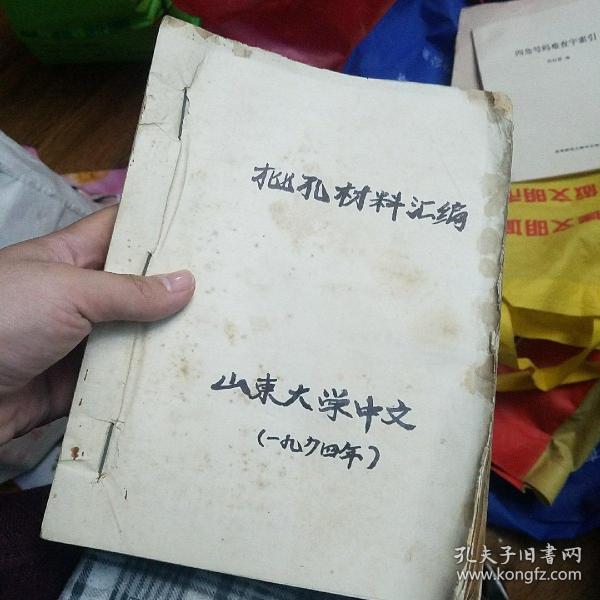 批孔材料汇编
山东大学中文
(一九夕四年)
四角号码难查字索引
做文明市
文明
孔夫子旧書网
www.kongfz.com